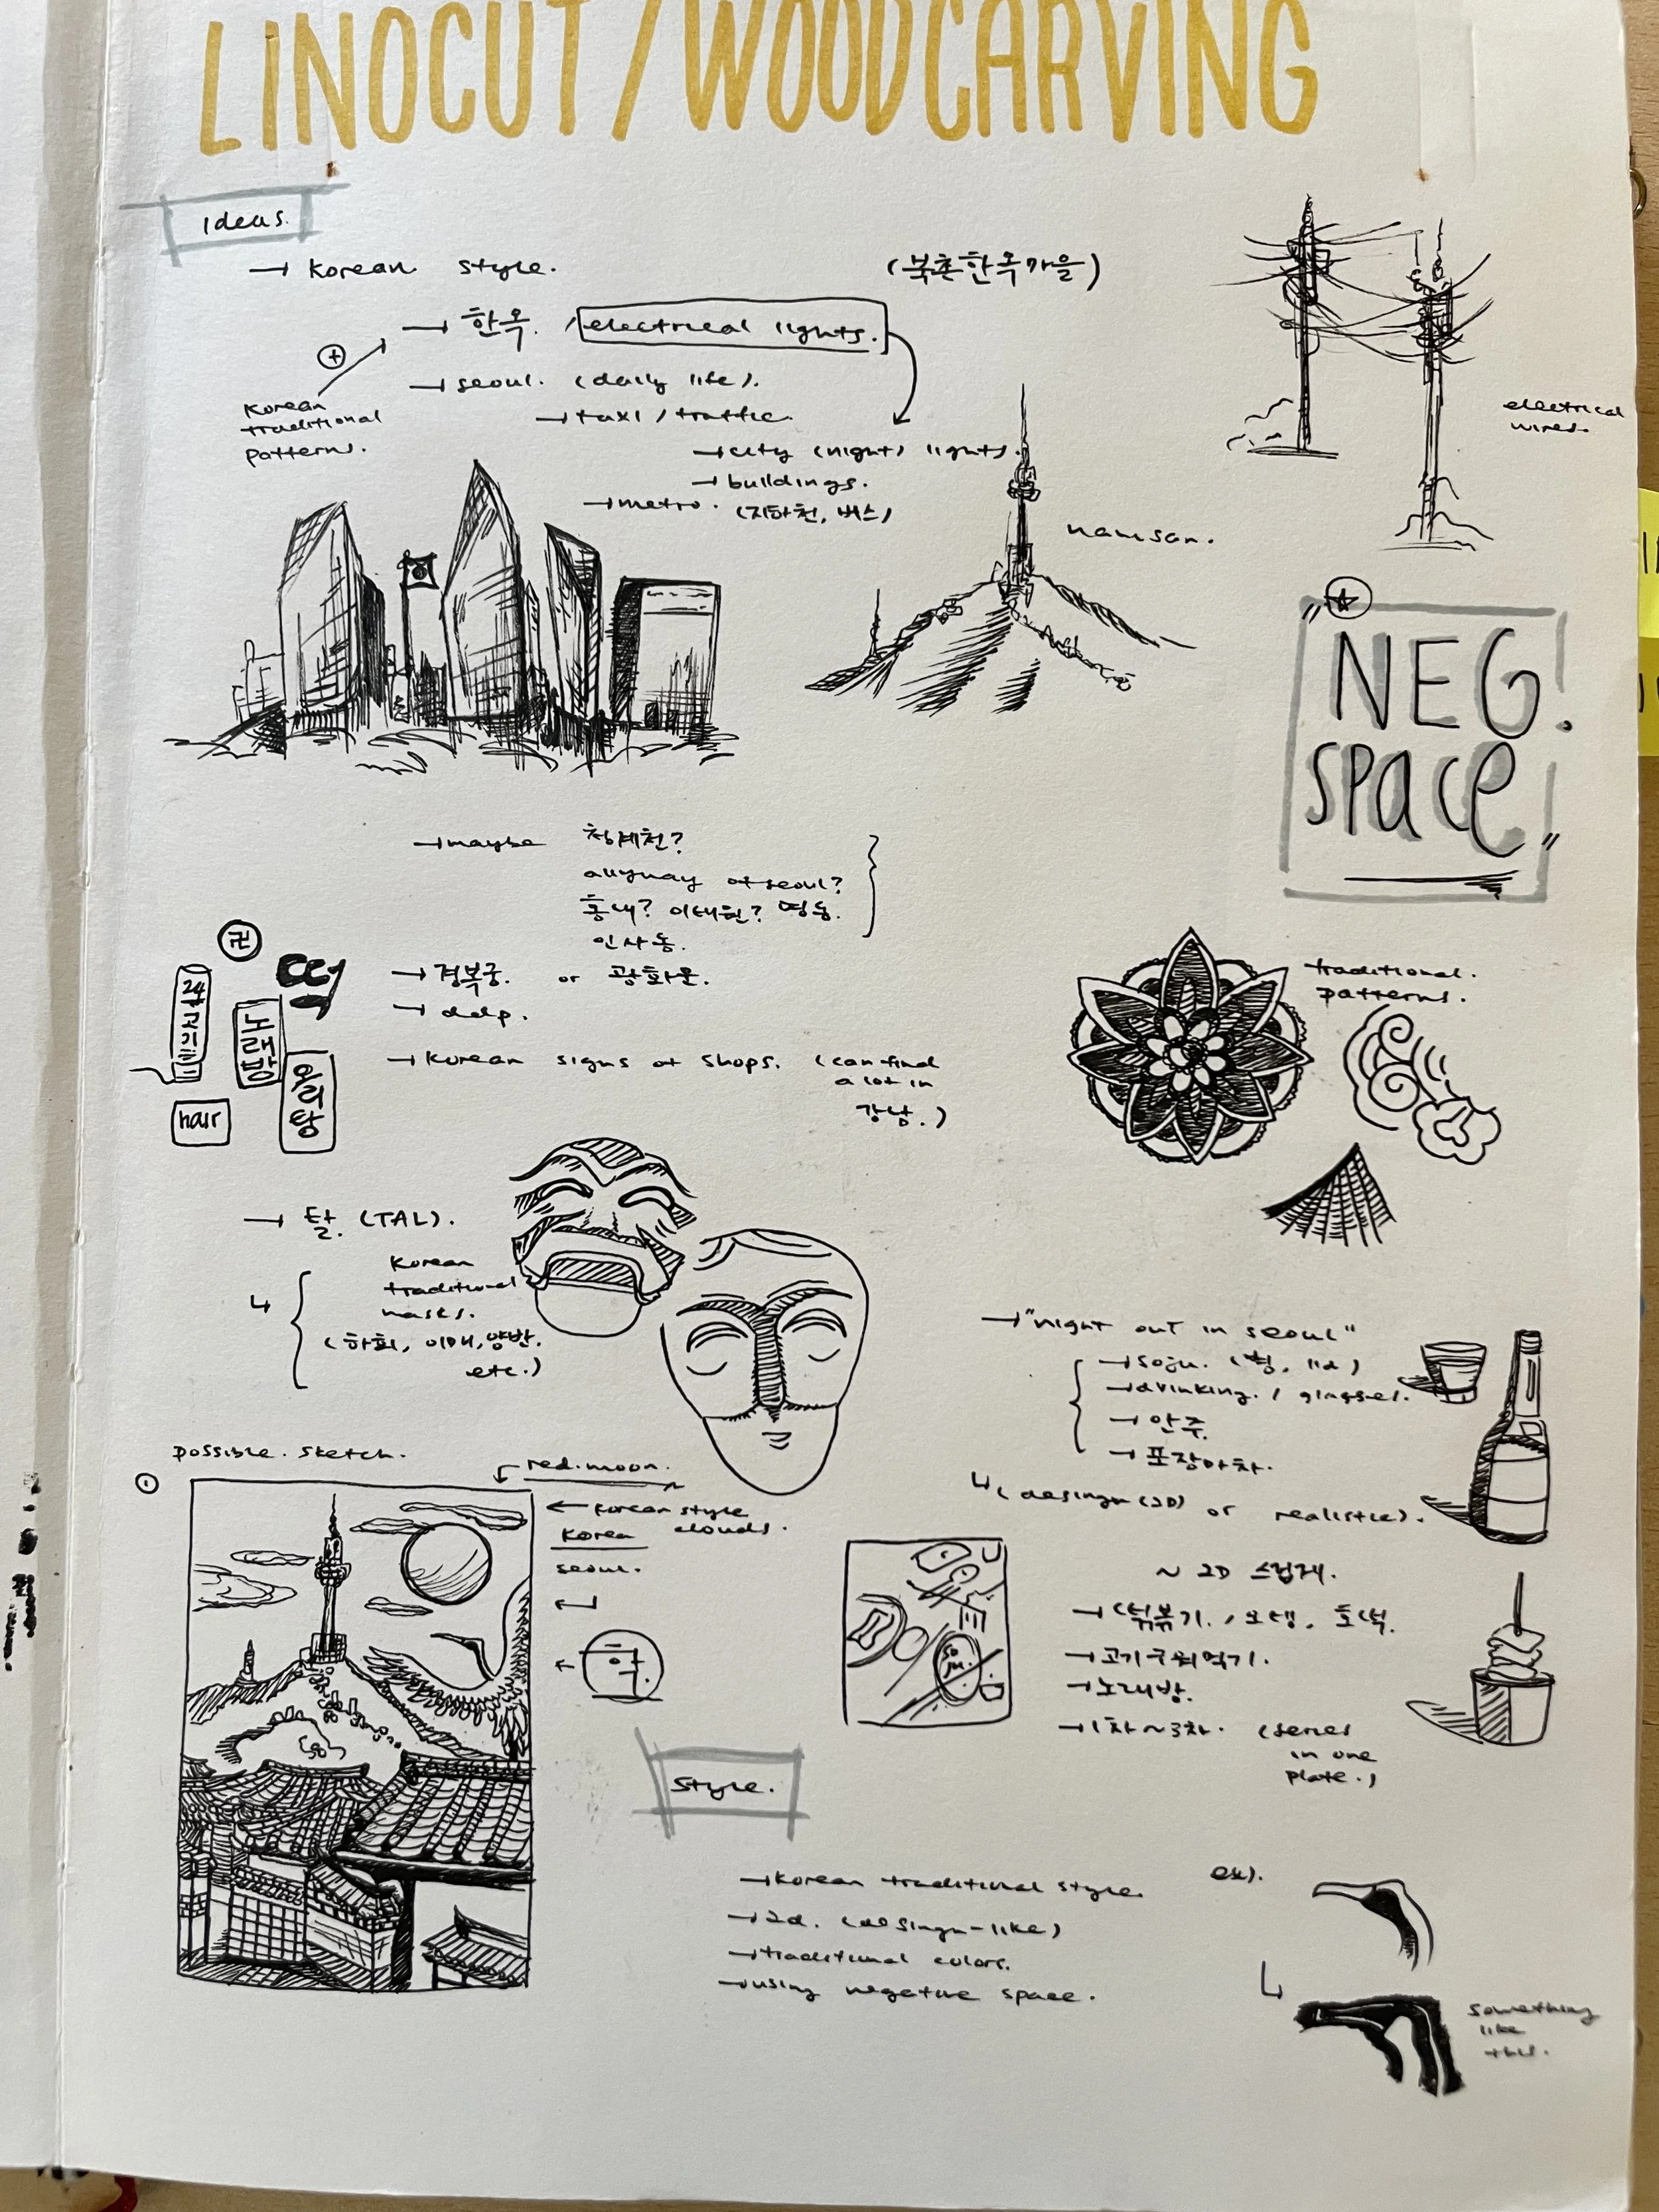 LINOCUT/WOODCARVING
Ideas.
→ Korean style.
(북촌한옥마을)
→ 한옥. / electrical lights.
+
Korean
traditional
patterns.
→ seoul. (daily life).
→ taxi / traffic.
→ city (night) lights.
→ buildings.
→ metro. (지하철, 버스)
namsan.
electrical
wires.
"NEG!
space!"
→ maybe 청계천?
allyway of seoul?
홍대? 이태원? 명동.
인사동.
→ 경복궁. or 광화문.
→ ddp.
→ Korean signs of shops. (can find
a lot in
강남.)
卍
떡
24
고기
노래방
오리탕
hair
traditional.
patterns.
→ 탈. (TAL).
Korean
traditional
masks.
(하회, 이매, 양반.
etc.)
→ "night out in seoul"
→ soju. (병, lid)
→ drinking. / glasses.
→ 안주.
→ 포장마차.
↳ (desingn (2D) or realistic).
possible. sketch.
1
red.moon.
← Korean style
clouds.
Korea
seoul.
학.
so
ju.
~ 2D 스럽게.
→ 떡볶기. / 오뎅. 호떡.
→ 고기구워먹기.
→ 노래방.
→ 1차~3차. (series
in one
plate.)
Style.
→ Korean traditional style.
→ 2d. (desingn-like)
→ traditional colors.
→ using negative space.
ex).
something
like
this.